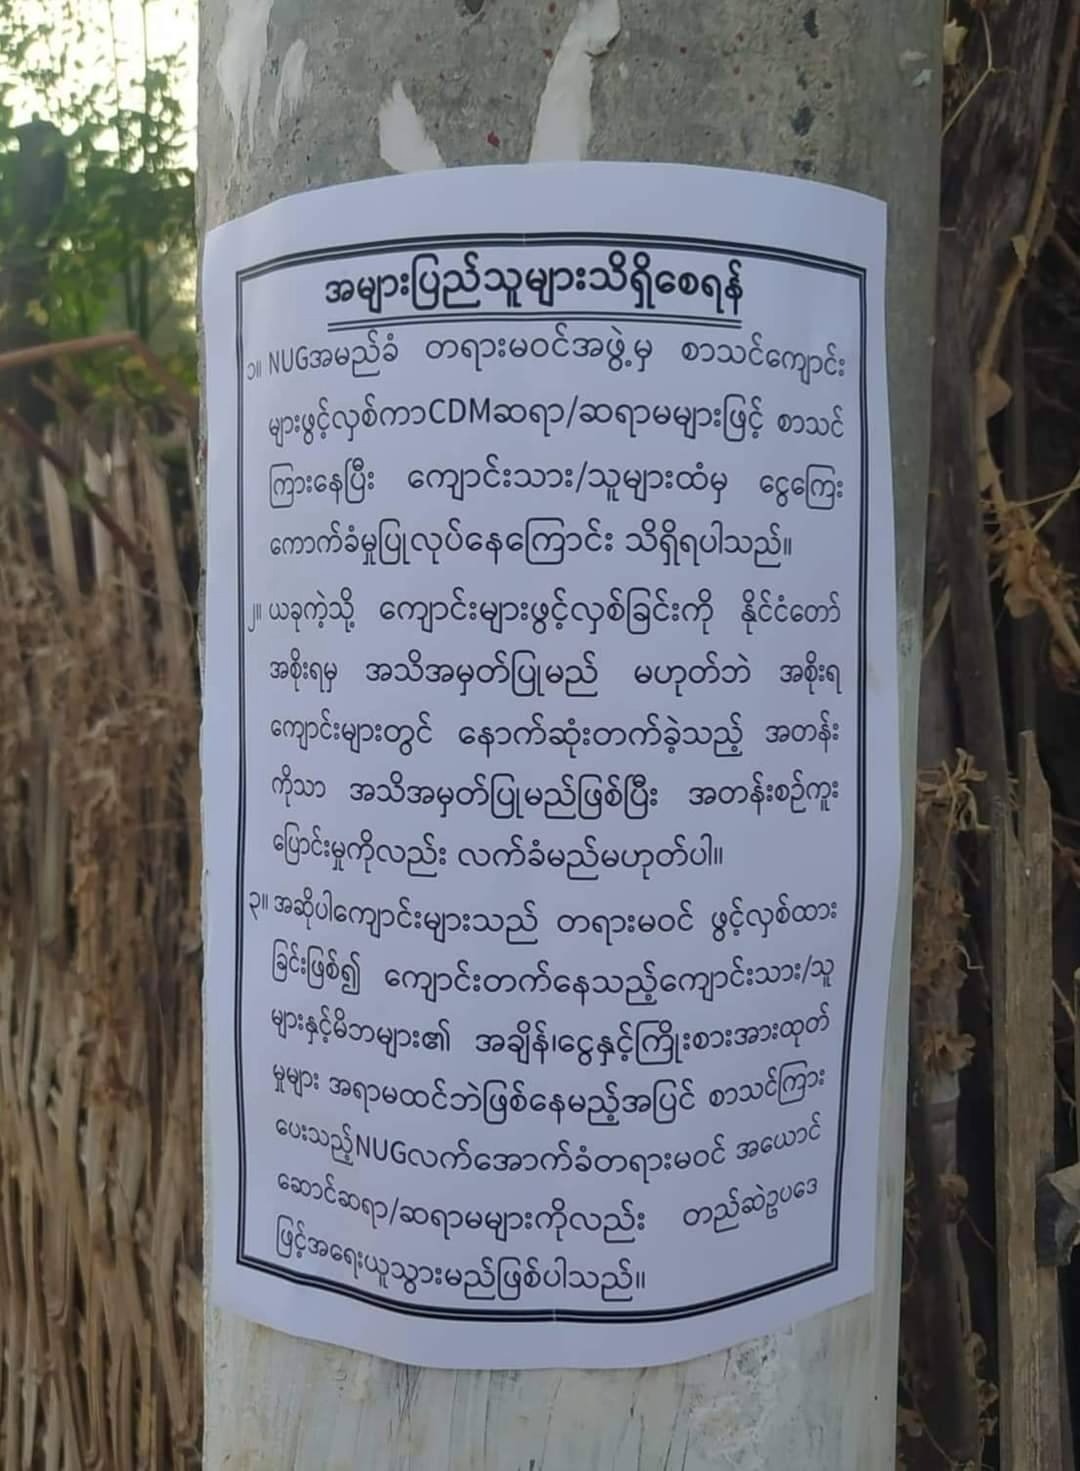 အများပြည်သူများသိရှိစေရန်
၁။ NUGအမည်ခံ တရားမဝင်အဖွဲ့မှ စာသင်ကျောင်း
များဖွင့်လှစ်ကာCDMဆရာ/ဆရာမများဖြင့် စာသင်
ကြားနေပြီး ကျောင်းသား/သူများထံမှ ငွေကြေး
ကောက်ခံမှုပြုလုပ်နေကြောင်း သိရှိရပါသည်။
၂။ ယခုကဲ့သို့ ကျောင်းများဖွင့်လှစ်ခြင်းကို နိုင်ငံတော်
အစိုးရမှ အသိအမှတ်ပြုမည် မဟုတ်ဘဲ အစိုးရ
ကျောင်းများတွင် နောက်ဆုံးတက်ခဲ့သည့် အတန်း
ကိုသာ အသိအမှတ်ပြုမည်ဖြစ်ပြီး အတန်းစဉ်ကူး
ပြောင်းမှုကိုလည်း လက်ခံမည်မဟုတ်ပါ။
၃။ အဆိုပါကျောင်းများသည် တရားမဝင် ဖွင့်လှစ်ထား
ခြင်းဖြစ်၍ ကျောင်းတက်နေသည့်ကျောင်းသား/သူ
များနှင့်မိဘများ၏ အချိန်၊ငွေနှင့်ကြိုးစားအားထုတ်
မှုများ အရာမထင်ဘဲဖြစ်နေမည့်အပြင် စာသင်ကြား
ပေးသည့်NUGလက်အောက်ခံတရားမဝင် အယောင်
ဆောင်ဆရာ/ဆရာမများကိုလည်း တည်ဆဲဥပဒေ
ဖြင့်အရေးယူသွားမည်ဖြစ်ပါသည်။